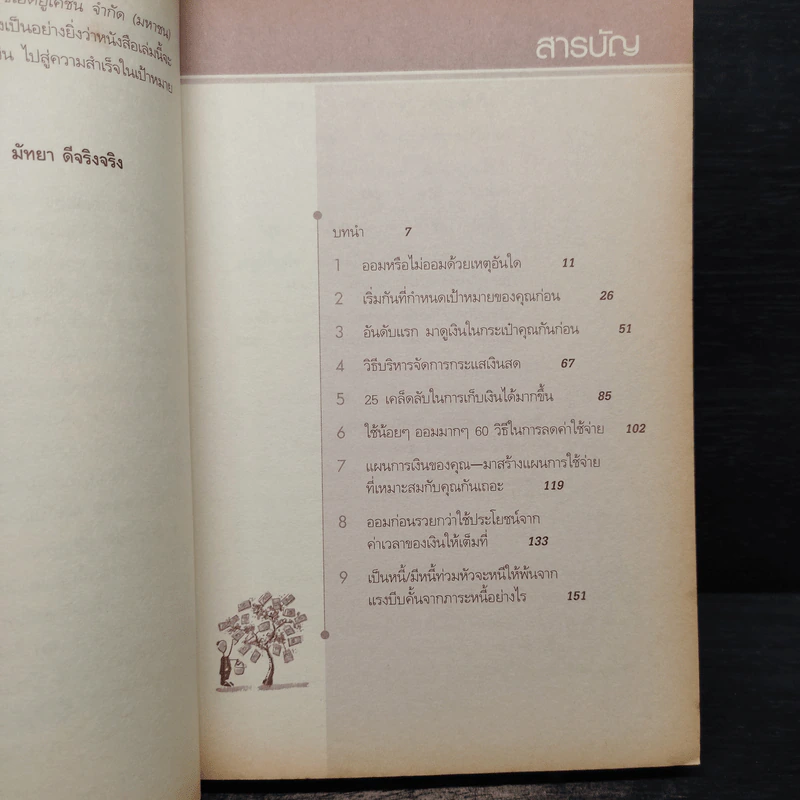 ซีเอ็ดยูเคชั่น จำกัด (มหาชน)
เป็นอย่างยิ่งว่าหนังสือเล่มนี้จะ
ไปสู่ความสำเร็จในเป้าหมาย
มัทยา ดีจริงจริง
สารบัญ
บทนำ 7
1 ออมหรือไม่ออมด้วยเหตุอันใด 11
2 เริ่มกันที่กำหนดเป้าหมายของคุณก่อน 26
3 อันดับแรก มาดูเงินในกระเป๋าคุณกันก่อน 51
4 วิธีบริหารจัดการกระแสเงินสด 67
5 25 เคล็ดลับในการเก็บเงินได้มากขึ้น 85
6 ใช้น้อยๆ ออมมากๆ 60 วิธีในการลดค่าใช้จ่าย 102
7 แผนการเงินของคุณ—มาสร้างแผนการใช้จ่าย
ที่เหมาะสมกับคุณกันเถอะ 119
8 ออมก่อนรวยกว่าใช้ประโยชน์จาก
ค่าเวลาของเงินให้เต็มที่ 133
9 เป็นหนี้/มีหนี้ท่วมหัวจะหนีให้พ้นจาก
แรงบีบคั้นจากภาระหนี้อย่างไร 151